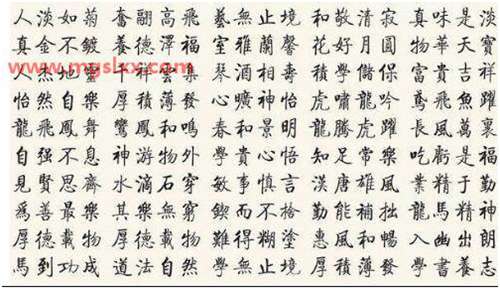 人淡如菊 奮翮高飛 藝無止境 和敬清寂 真味是淡
真金不鍍 養德澤福 室雅蘭馨 花好月圓 物華天寶
www.mgslxx.com
人地靈 雲集 琴 學 富貴吉祥
怡然自樂 厚積薄發 曠神怡 虎嘯龍吟 鳶飛魚躍
龍飛鳳舞 鸞鳳和鳴 春和景明 龍騰虎躍 長風萬里
自强不息 神游物外 學貴心悟 知足常樂 吃虧是福
見賢思齊 水滴石穿 敏事慎言 漢唐雄風 業精于勤
爲善最樂 其樂無窮 鍥而不捨 勤能補拙 龍馬精神
厚德載物 厚德載物 難得糊塗 惠風和暢 入幽出朗
馬到功成 道法自然 學無止境 厚積薄發 學書養志